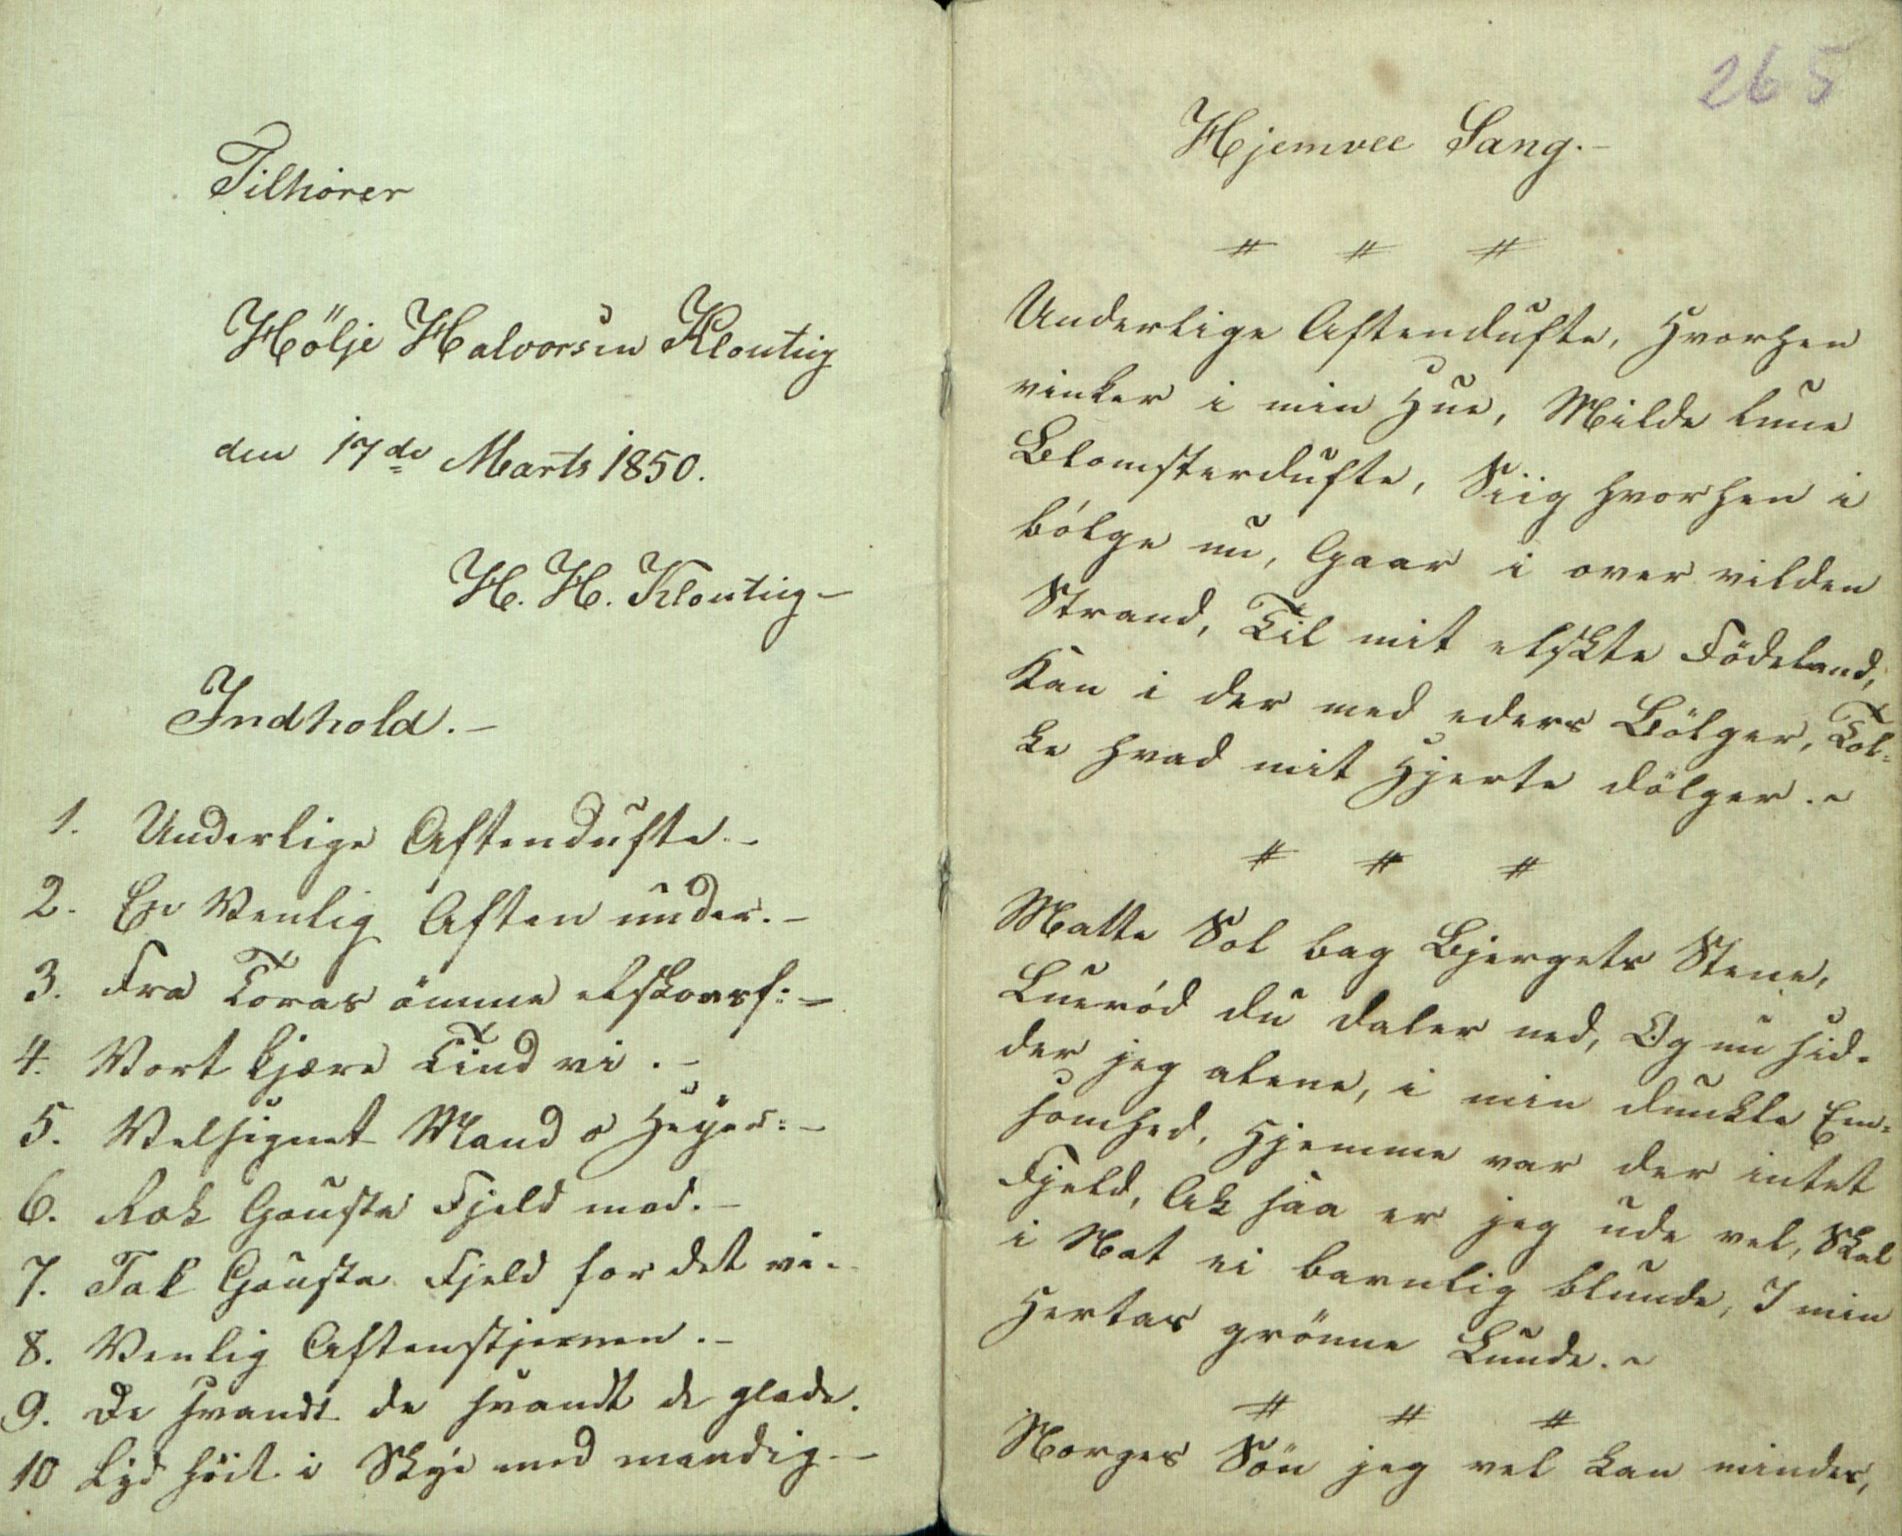 Tilhører
Hölje Halvorsen Klouteig
den 17de Marts 1850.
H. H. Klouteig –
Indhold. –
1. Underlige Aftendufte. –
2. En Venlig Aften under. –
3. Fra Toras ömme elskovsf: –
4. Vort kjære Tind vi . –
5. Velsignet Mand o Heyer: –
6. Rak Gousta Fjeld mod. –
7. Tak Gousta Fjeld for det vi. –
8. Venlig Aftenstjernen. –
9. De svandt de svandt de glade.
10 Lyd höit i Skye med mandig. –
265
Hjemvee Sang. –
# # #
Underlige Aftendufte, Hvorhen
vinker i min Hue, Milde lune
Blomsterdufte, Siig hvorhen i
bólge nu, Gaar i over vilden
Strand, Til mit elskte Födeland,
Kan i der med eders Bölger, Tol-
ke hvad mit Hjerte dölger. ~
# # #
Matte Sol bag Bjergets Stene,
Lueród du daler ned, Og nu sid-
der jeg alene, i min dunkle Een-
somhed, Hjemme var der intet
Fjeld, Ak saa er jeg ude vel, Skal
i Nat ei barnlig blunde, I min
Hertas grönne Lunde. ~
# # #
Norges Sön jeg vel kan mindes,